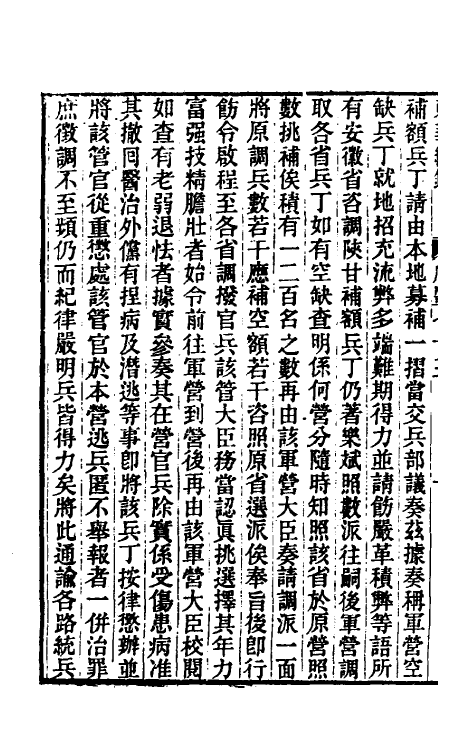 補額兵丁請由本地募補一摺當交兵部議奏茲據奏稱軍營空
缺兵丁就地招充流弊多端難期得力並請飭嚴革積弊等語所
有安徽省咨調陝甘補額兵丁仍著樂斌照數派往嗣後軍營調
取各省兵丁如有空缺查明係何營分隨時知照該省於原營照
數挑補俟積有一二百名之數再由該軍營大臣奏請調派一面
將原調兵數若干應補空額若干咨照原省選派俟奉旨後卽行
飭令啟程至各省調撥官兵該管大臣務當認眞挑選擇其年力
富强技精膽壯者始令前往軍營到營後再由該軍營大臣校閱
如查有老弱退怯者據實參奏其在營官兵除實係受傷患病准
其撤囘醫治外儻有捏病及潛逃等事卽將該兵丁按律懲辦並
將該管官從重懲處該管官於本營逃兵匿不舉報者一併治罪
庶徵調不至頻仍而紀律嚴明兵皆得力矣將此通諭各路統兵